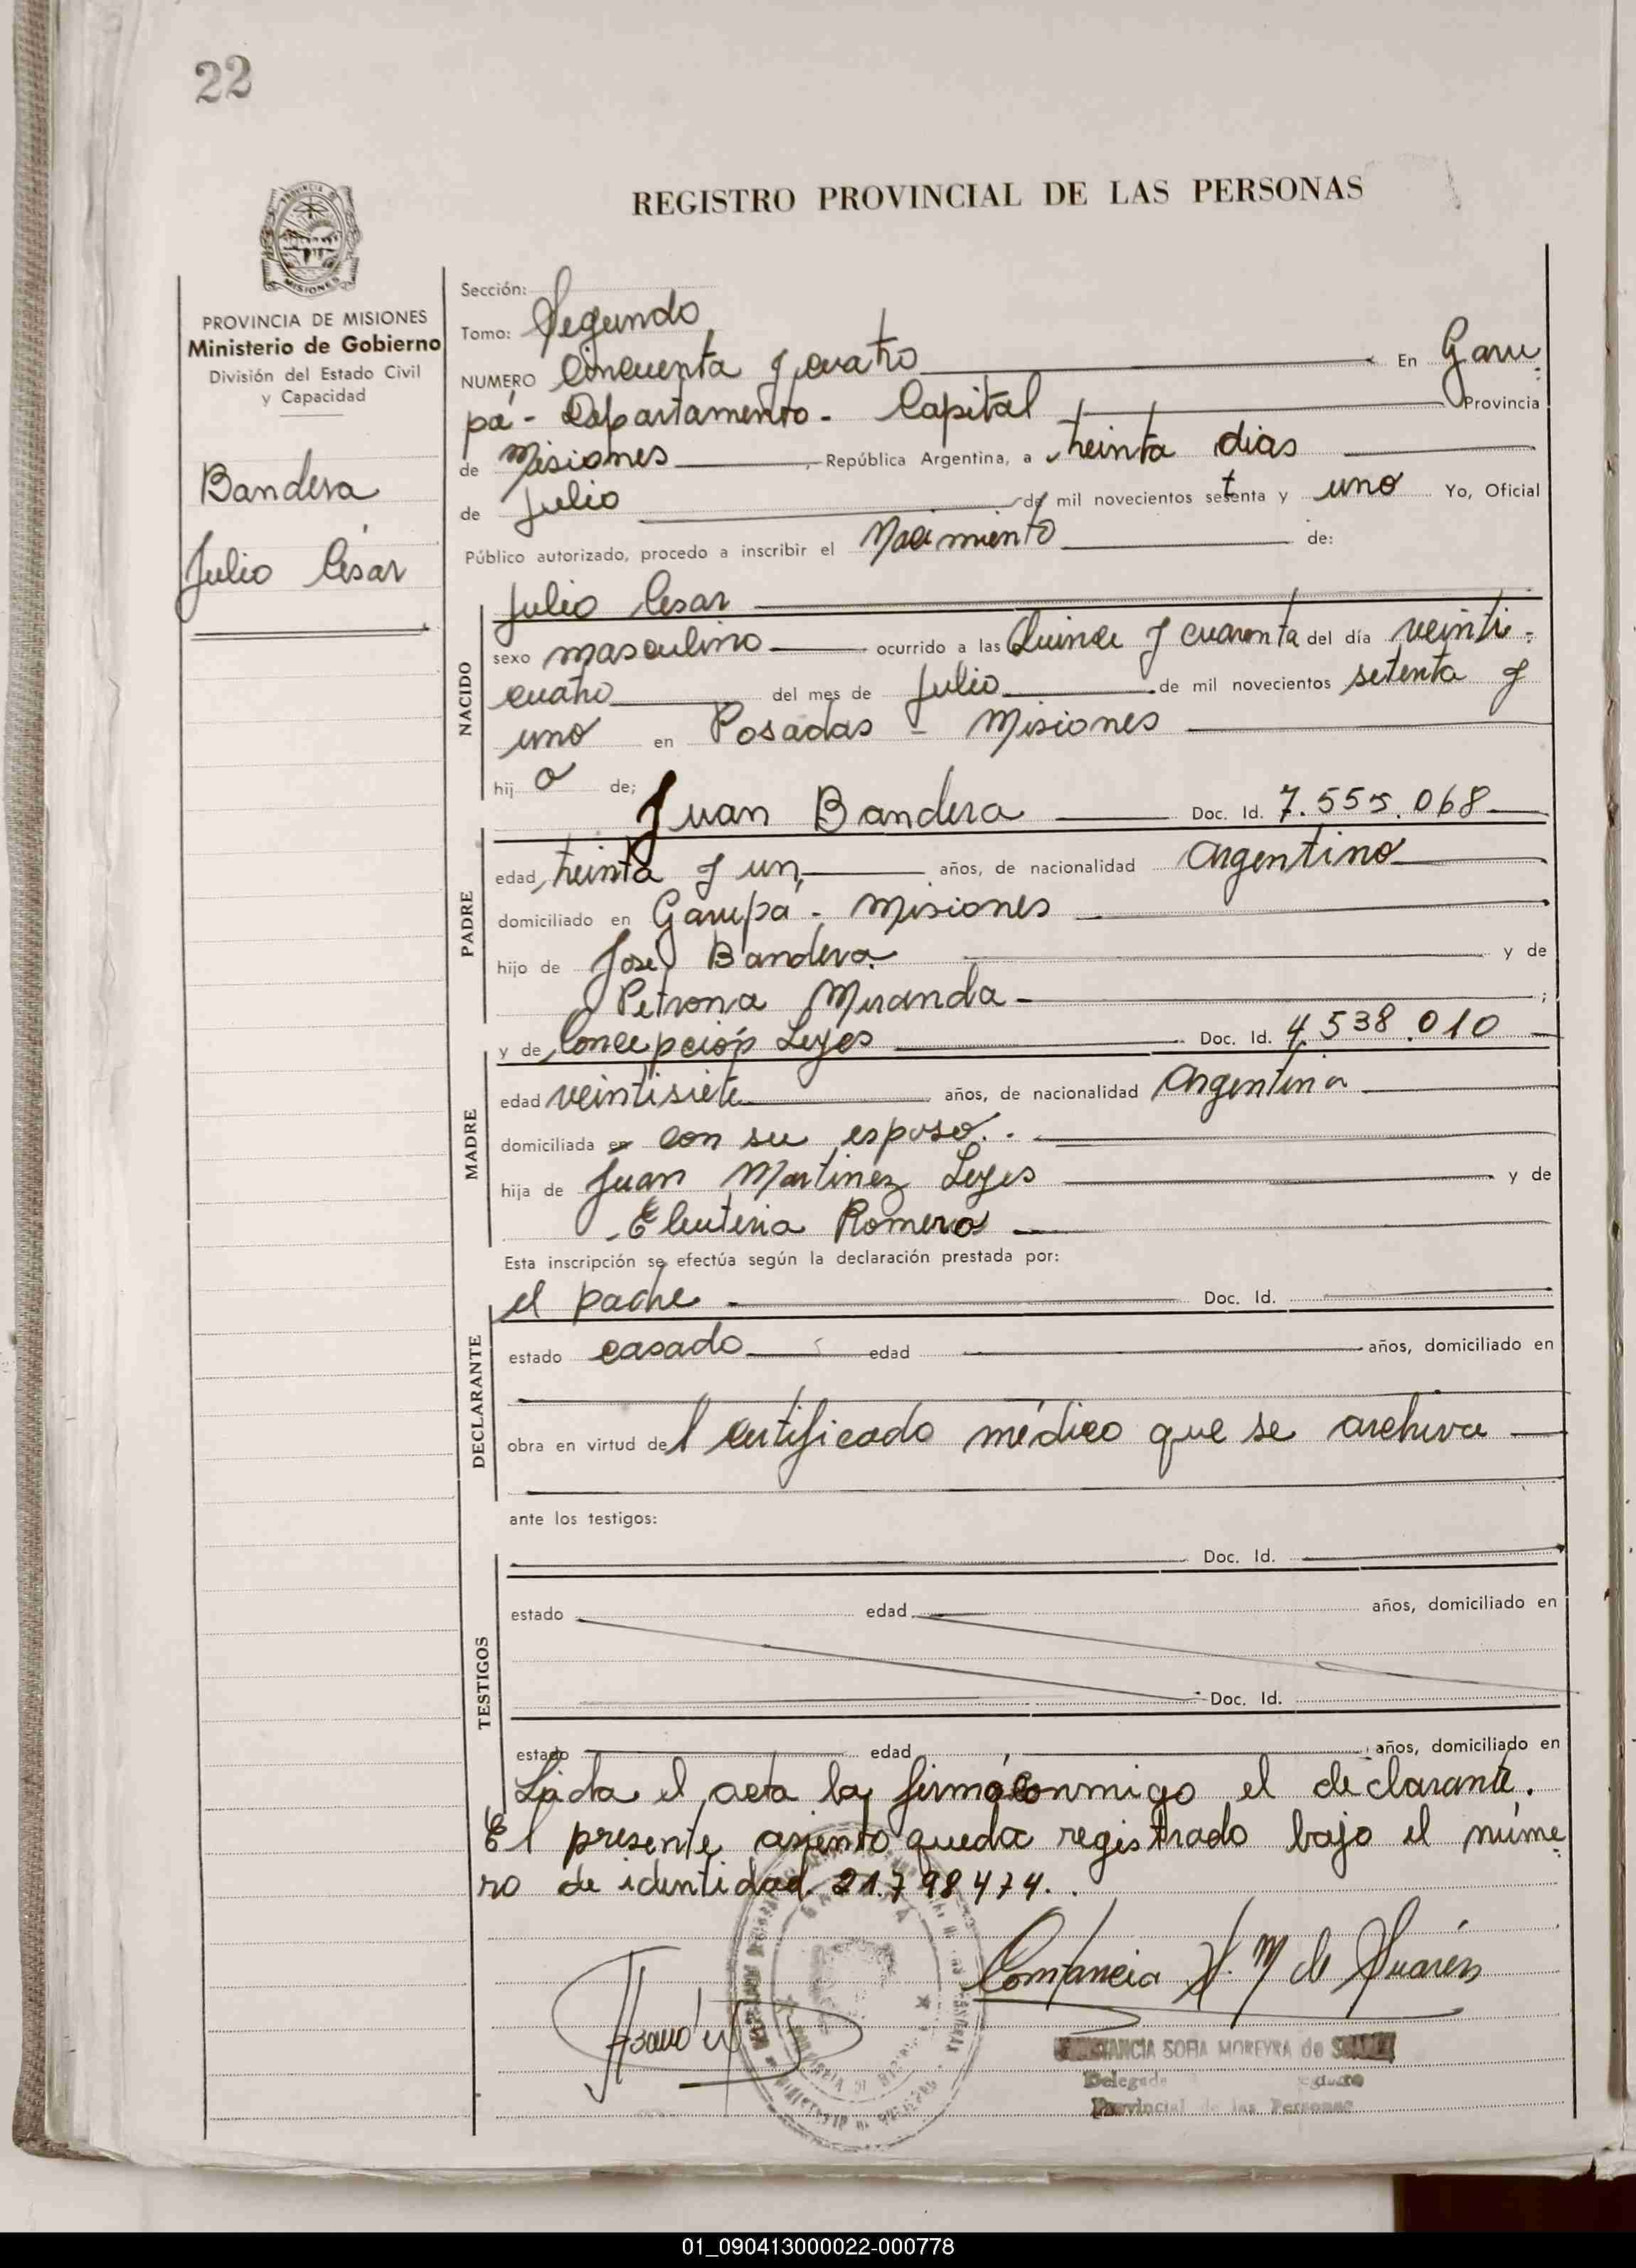 22
REGISTRO PROVINCIAL DE LAS PERSONAS
PROVINCIA DE MISIONES
MISIONES
PROVINCIA DE MISIONES
Ministerio de Gobierno
División del Estado Civil
y Capacidad
Bandera
Julio César
Sección:
Tomo: Segundo
NUMERO Cincuenta y cuatro En Garu
pá - Departamento - Capital Provincia
de Misiones, República Argentina, a treinta dias
de Julio de mil novecientos setenta y uno Yo, Oficial
Público autorizado, procedo a inscribir el Nacimiento de:
NACIDO
Julio Cesar
sexo masculino ocurrido a las Quince y cuarenta del día veinti-
cuatro del mes de Julio de mil novecientos setenta y
uno en Posadas - Misiones
hij o de;
Juan Bandera Doc. Id. 7.555.068
PADRE
edad treinta y un años, de nacionalidad Argentino
domiciliado en Garupá - Misiones
hijo de José Bandera y de
Petrona Miranda ;
y de Concepción Leyes Doc. Id. 4.538.010
MADRE
edad veintisiete años, de nacionalidad Argentina
domiciliada en con su esposo.
hija de Juan Martinez Leyes y de
Eleuteria Romero
Esta inscripción se efectúa según la declaración prestada por:
el padre Doc. Id.
DECLARANTE
estado casado edad años, domiciliado en
obra en virtud del certificado médico que se archiva
ante los testigos:
TESTIGOS
Doc. Id.
estado edad años, domiciliado en
Doc. Id.
estado edad años, domiciliado en
Leida el acta la firmó conmigo el declarante.
El presente asiento queda registrado bajo el núme
ro de identidad. 21.798474.
Constancia S. M de Suárez
CONSTANCIA SOFIA MOREYRA de SUAREZ
Delegada
Provincial de las Personas
01_090413000022-000778